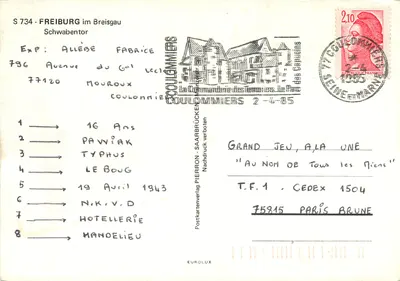 S 734 - FREIBURG im Breisgau
Schwabentor
EXP: ALLÈGE FABRICE
796 AVENUE du Gal Leclerc
77120 MOUROUX
COULOMMIERS
1 → 16 Ans
2 → PAWIAK
3 → TYPHUS
4 → LE BOUG
5 → 19 Avril 1943
6 → N.K.V.D
7 → HOTELLERIE
8 → MANDELIEU
COULOMMIERS
La Commanderie des Templiers. Le Parc
des Capucins
COULOMMIERS 2-4-85
77 COULOMMIERS
2-4
1985
SEINE-et-MARNE
2,10
Postkartenverlag PIERRON - SAARBRÜCKEN
Nachdruck verboten
GRAND JEU, A LA UNE
"AU NOM DE TOUS LES MIENS"
T.F.1 - CEDEX 1504
75815 PARIS BRUNE
EUROLUX